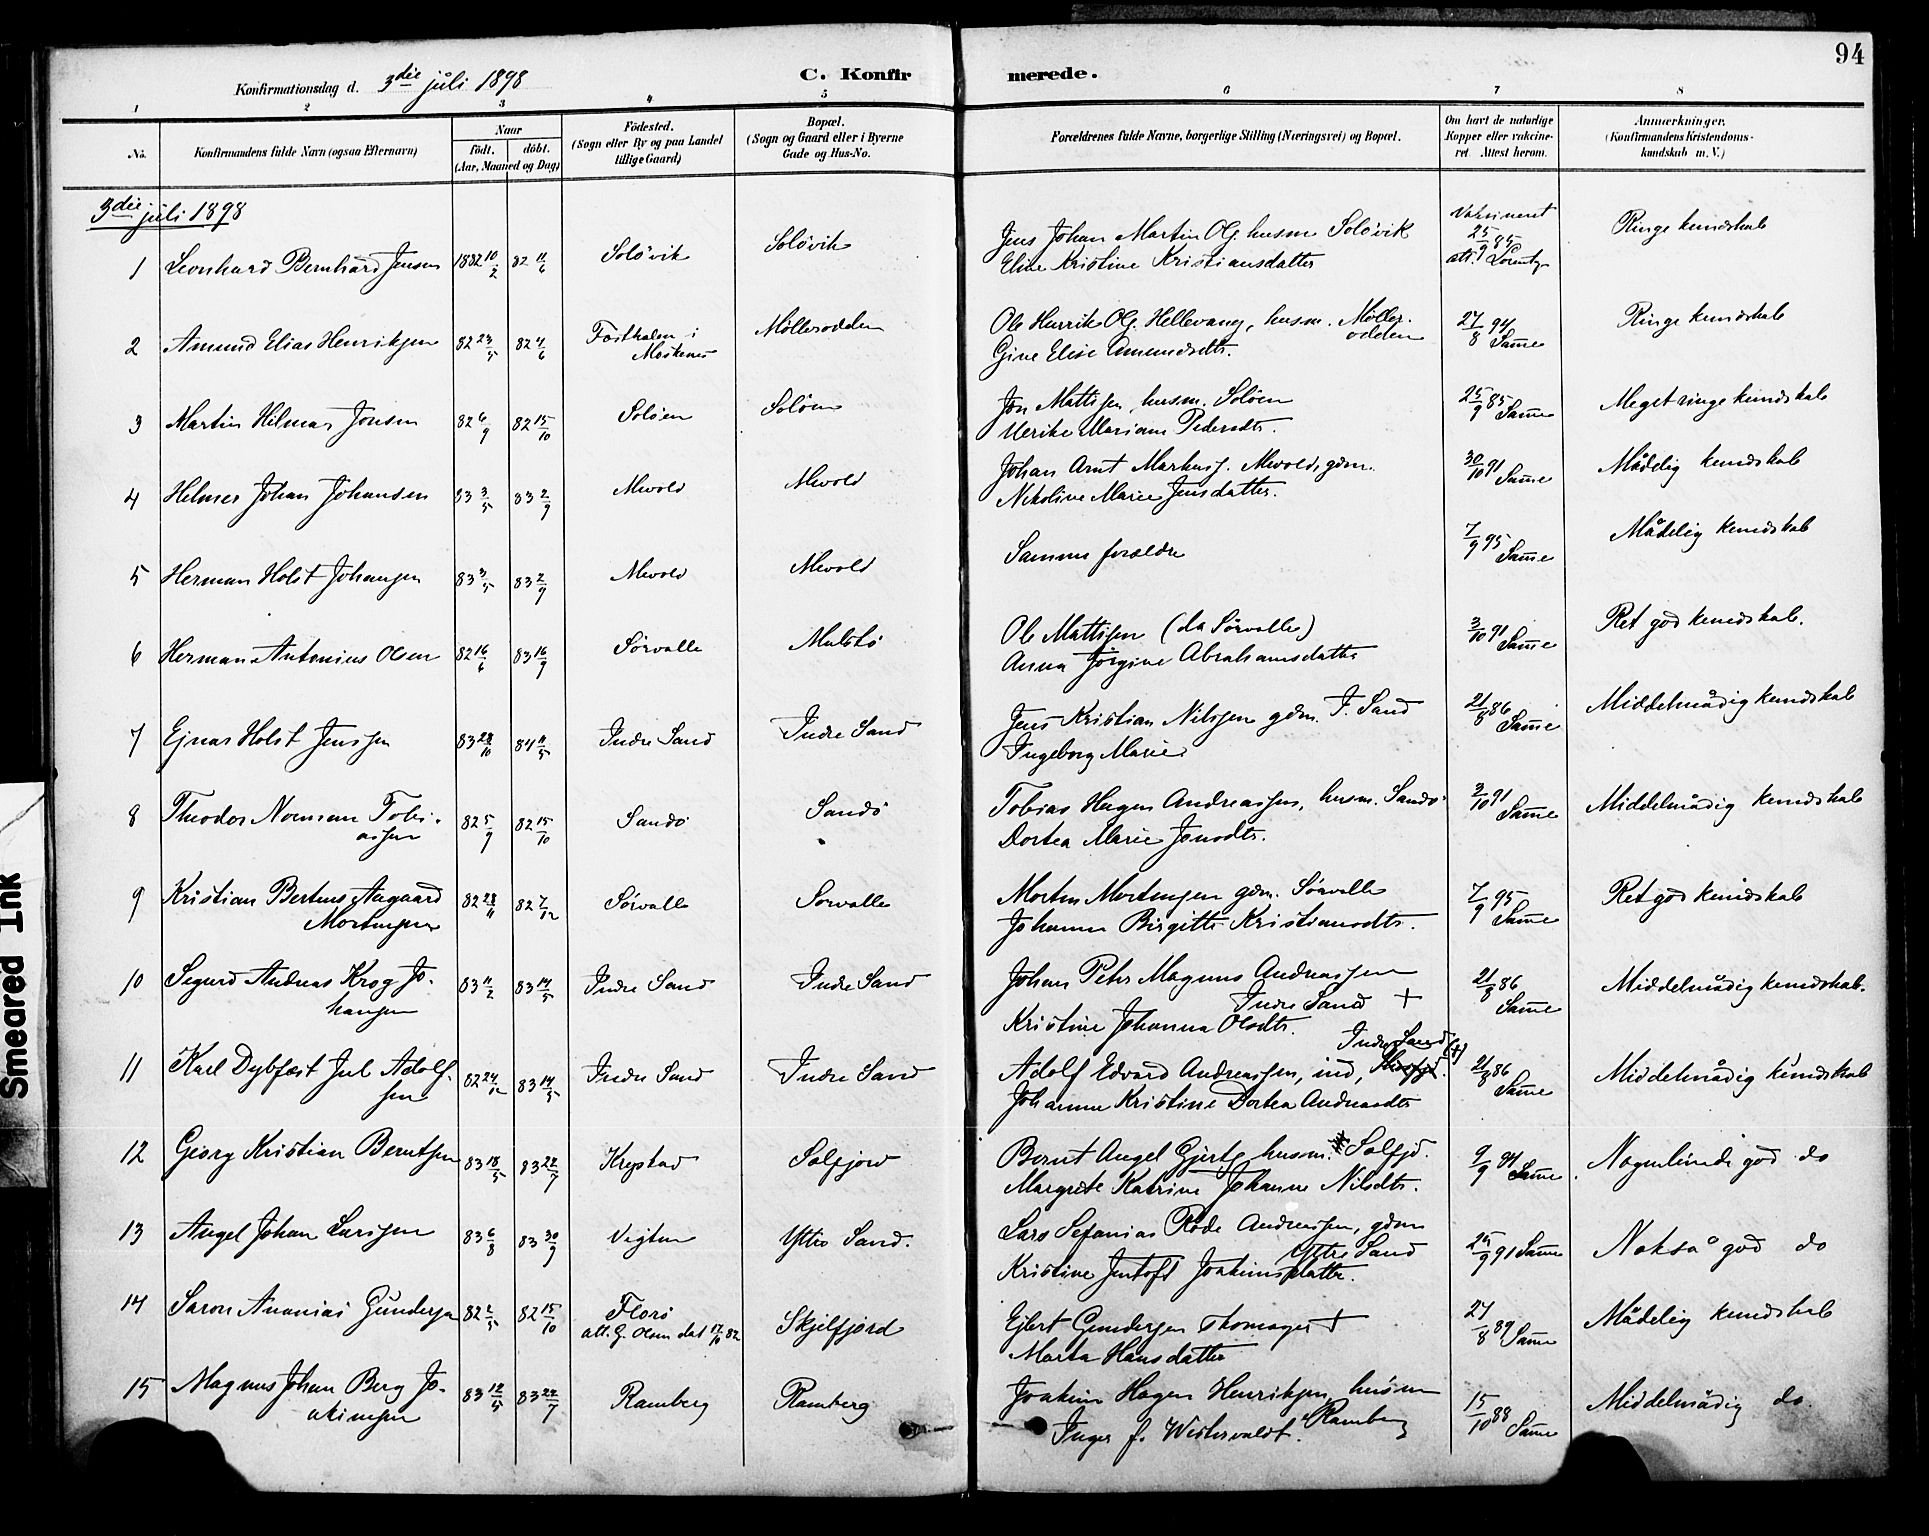 94
Konfirmationsdag d. 3die juli 1898
C. Konfirmerede.
1 2 3 4 5 6 7 8
No.
Konfirmandens fulde Navn (ogsaa Efternavn)
Naar
født. døbt.
(Aar, Maaned og Dag)
Fødested.
(Sogn eller By og paa Landet
tillige Gaard)
Bopæl.
(Sogn og Gaard eller i Byerne
Gade og Hus-No.
Forældrenes fulde Navne, borgerlige Stilling (Næringsvei) og Bopæl.
Om havt de naturlige
Kopper eller vakcine-
ret. Attest herom.
Anmærkninger.
(Konfirmandens Kristendoms-
kundskab m. V.)
3die juli 1898
1 Leonhard Bernhard Jensen 1882 10/2 82 11/6 Soløvik Soløvik
Jens Johan Martin Ols. husm Soløvik
Eline Kristine Kristiansdatter
Vaksineret 25/9 85 att. Lorentz
Ringe kundskab
2 Amund Elias Henriksen 82 23/5 82 4/6 Moskenes Møllerodden
Ole Henrik Ols. Hellevang, husm. Møller-
odden
Gine Elise Amundsdtr.
27/8 94 Samme
Ringe kundskab
3 Martin Hilmar Jonsen 82 6/9 82 15/10 Soløen Soløen
Jon Mattisen, husm. Soløen
Ulrike Mariane Pedersdtr.
25/9 85 Samme
Meget ringe kundskab
4 Helmer Johan Johansen 83 3/5 83 2/9 Mevold Mevold
Johan Arnt Markuss. Mevold, gdm.
Nikoline Marie Jensdatter.
30/10 91 Samme
Mådelig kundskab
5 Herman Holst Johansen 83 3/5 83 2/9 Mevold Mevold
Samme forældre
7/9 95 Samme
Mådelig kundskab
6 Herman Antonius Olsen 82 16/6 83 16/9 Sørvalle Mulstø
Ole Mattisen (da Sørvalle)
Anna Jørgine Abrahamsdatter
3/10 91 Samme
Ret god kundskab.
7 Ejnar Holst Jenssen 83 28/10 84 11/5 Indre Sand Indre Sand
Jens Kristian Nilssen gdm. I. Sand
Ingeborg Marie
21/8 86 Samme
Middelmådig kundskab
8 Theodor Norman Tobi-
assen 82 5/9 82 15/10 Sandø Sandø
Tobias Hagen Andreassen, husm. Sandø
Dortea Marie Jonsdtr.
3/10 91 Samme
Middelmådig kundskab
9 Kristian Berteus Aagaard
Mortensen 82 28/11 82 7/12 Sørvalle Sørvalle
Morten Mortensen gdm. Sørvalle
Johanna Birgitte Kristiansdtr.
7/9 95 Samme
Ret god kundskab
10 Sigurd Andreas Krog Jo-
hansen 83 11/2 83 14/5 Indre Sand Indre Sand
Johan Peter Magnus Andreassen
Indre Sand +
Kristine Johanna Olsdtr.
21/8 86 Samme
Middelmådig kundskab.
11 Karl Dybfest Jul Adolf-
sen 82 24/12 83 14/5 Indre Sand Indre Sand
Indre Sand (+)
Adolf Edvard Andreassen, ind,
Johanna Kristine Dortea Andreasdtr
21/8 86 Samme
Middelmådig kundskab
12 Georg Kristian Berntsen 83 18/5 83 22/7 Krystad Solfjord
Bernt Angel Gjerts. husm. Solfjd.
Margrete Katrine Johanne Nilsdtr.
9/9 91 Samme
Nogenlunde god do
13 Angel Johan Larssen 83 6/8 83 30/9 Vigten Yttre Sand.
Lars Sefanias Røde Andreassen, gdm
Yttre Sand
Kristine Jentoft Joakimsdatter.
25/9 91 Samme
Nokså god do
14 Saron Ananias Gundersen 82 2/5 82 15/10 Florø
att. G. Olsen dat 17/10 82 Skjelfjord
Ejlert Gundersen Thomasjer +
Marta Hansdatter
27/8 89 Samme
Mådelig kundskab
15 Magnus Johan Berg Jo-
akimsen 83 12/5 83 22/7 Ramberg Ramberg
Joakim Hagen Henriksen, husm
Ramberg
Inger f. Westervaldt.
15/10 88 Samme
Middelmådig do.
Smeared Ink